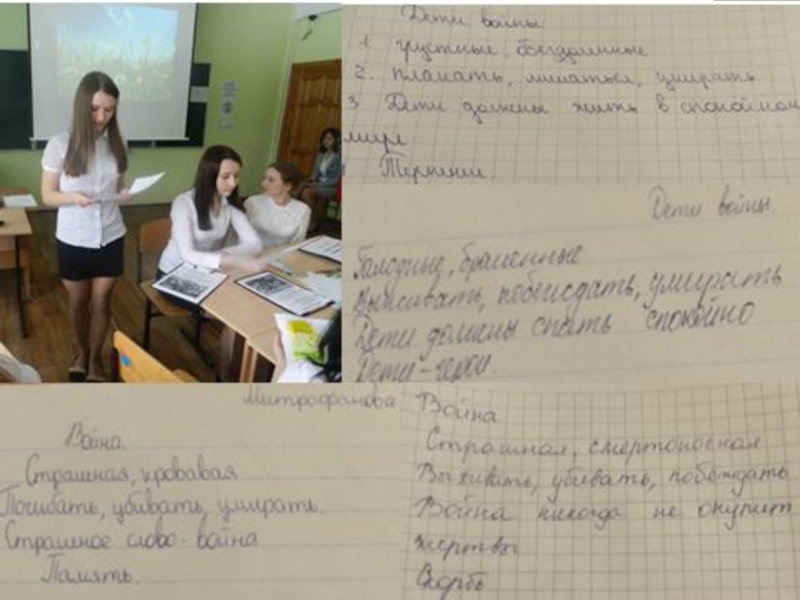 Дети войны
1. грустные, бездомные
2. плакать, лишаться, умирать
3. Дети должны жить в спокойном
мире
Терпение.
Дети войны.
Голодные, брошенные
Выживать, побеждать, умирать
Дети должны спать спокойно
Дети - герои.
Митрофанова
Война
Страшная, кровавая
Погибать, убивать, умирать.
Страшное слово - война
Память.
Война
Страшная, смертоносная
Выживать, убивать, побеждать
Война никогда не окупит
жертвы
Скорбь